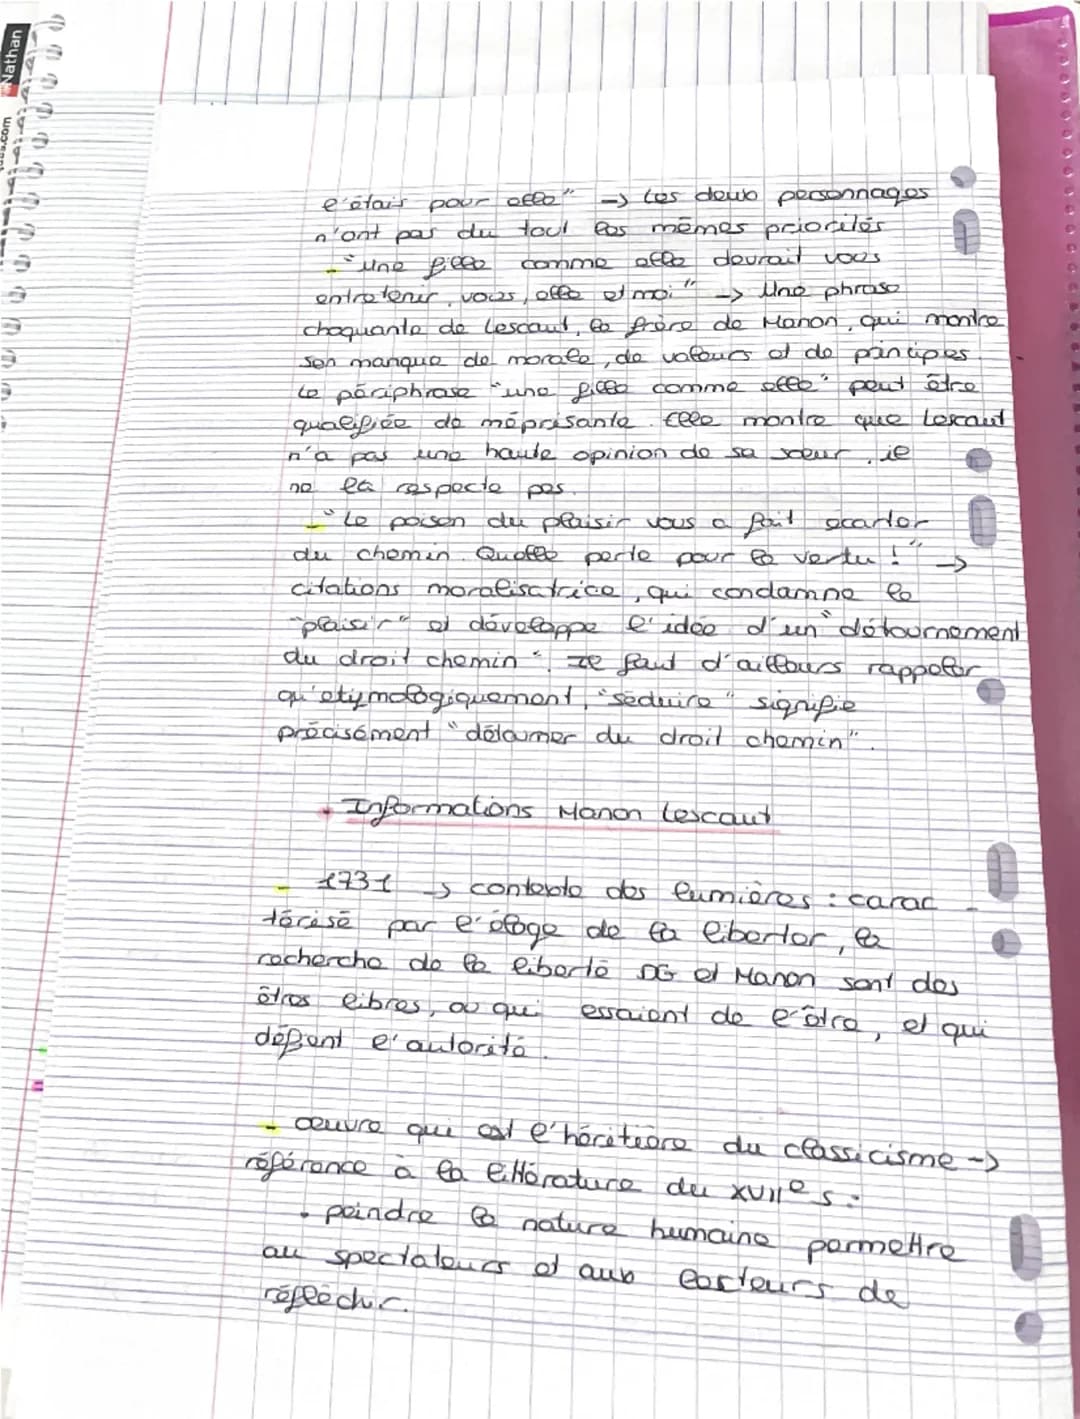 Nathan
l'étais pour elle" -> Les deux personnages
n'ont pas du tout les mêmes priorités
- "Une fille comme elle devrait vous
entretenir, vous, elle et moi" -> Une phrase
choquante de Lescaut, le frère de Manon, qui montre
son manque de morale, de valeurs et de principes
Le périphrase "une fille comme elle" peut être
qualifiée de méprisante. Elle montre que Lescaut
n'a pas une haute opinion de sa sœur, il
ne la respecte pas.
- "Le poison du plaisir vous a fait écarter
du chemin. Quelle perte pour la vertu !" ->
citations moralisatrice, qui condamne le
"plaisir" et développe l'idée d'un "détournement
du droit chemin". Il faut d'ailleurs rappeler
qu'etymologiquement, "séduire" signifie
précisément "détourner du droit chemin".
• Informations Manon Lescaut
- 1731 -> contexte des lumières : carac -
térisé par l'éloge de la libertor, la
recherche de la liberté DG et Manon sont des
êtres libres, ou qui essaient de l'être, et qui
défient l'autorité.
- œuvre qui est l'héritière du classicisme ->
référence à la littérature du XVIIe s :
• peindre la nature humaine permettre
au spectateurs et aux lecteurs de
réfléchir.